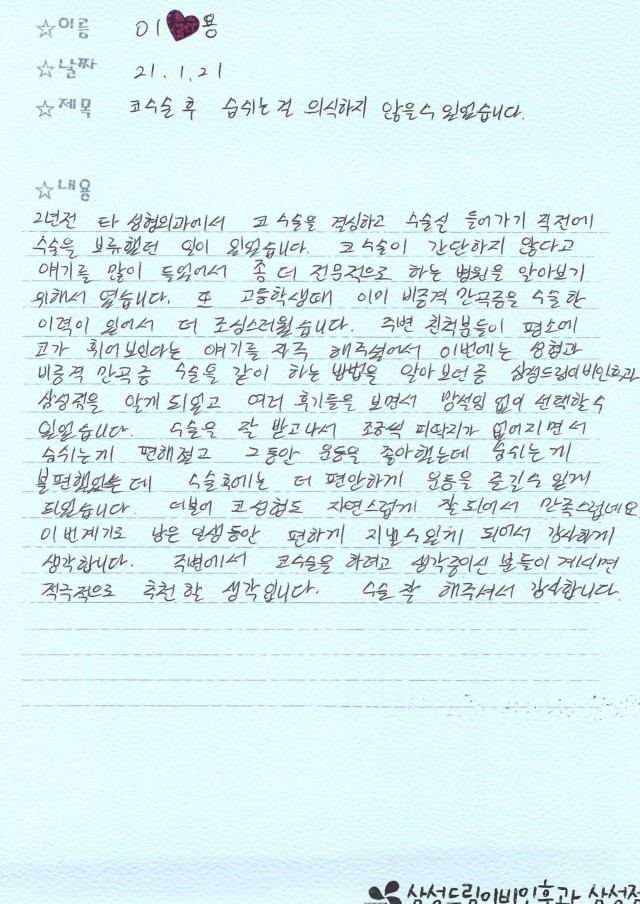 ☆이름 이♥용
☆날짜 21.1.21
☆제목 코수술 후 숨쉬는걸 의식하지 않을수 있었습니다.
☆내용
2년전 타 성형외과에서 코 수술을 결심하고 수술실 들어가기 직전에
수술을 보류했던 일이 있었습니다. 코 수술이 간단하지 않다고
얘기를 많이 들었어서 좀 더 전문적으로 하는 병원을 알아보기
위해서 였습니다. 또 고등학생때 이미 비중격 만곡증을 수술한
이력이 있어서 더 조심스러웠습니다. 주변 친척분들이 평소에
코가 휘어보인다는 얘기를 자주 해주셨어서 이번에는 성형과
비중격 만곡증 수술을 같이 하는 방법을 알아보던중 삼성드림이비인후과
삼성점을 알게 되었고 여러 후기들을 보면서 망설임 없이 선택할수
있었습니다. 수술을 잘 받고나서 조금씩 피딱지가 없어지면서
숨쉬는게 편해졌고 그동안 운동을 좋아했는데 숨쉬는게
불편했었는데 수술후에는 더 편안하게 운동을 즐길수 있게
되었습니다. 더불어 코성형도 자연스럽게 잘되어서 만족스럽네요
이번계기로 남은 인생동안 편하게 지낼수있게 되어서 감사하게
생각합니다. 주변에서 코수술을 하려고 생각중이신 분들이 계시면
적극적으로 추천할 생각입니다. 수술 잘 해주셔서 감사합니다.
삼성드림이비인후과 삼성점